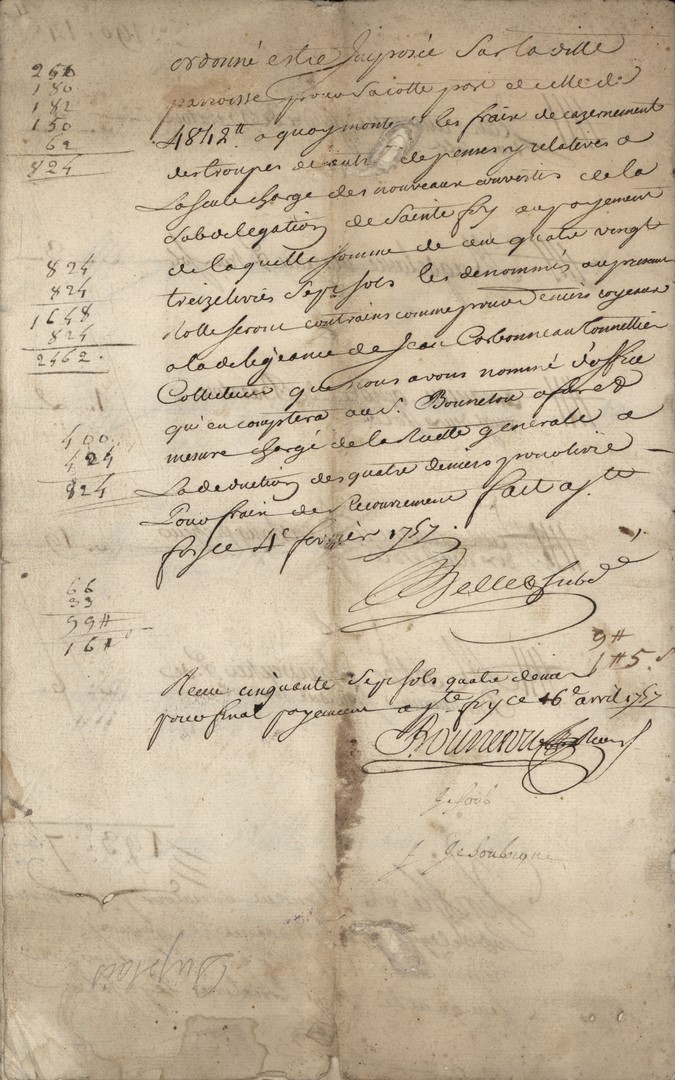 ordonné estre Imposée Sur la ville
parroisse pour Sa cotte part de celle de
4842ᵗᵗ a quoy monte les frais de cazernement
des troupes de depenses y relatives a
La seule charge des nouveaux convertis de la
Subdelegation de Sainte foy au payement
de laquelle somme de cen quatre vingt
treize livres Sept sols les denommés au present
Rolle seront contrains comme pour deniers royeaux
a la deligeance de Jean Carbonneau tonnellier
Collecteur que nous avons nommé d'office
qu'en comptera au S. Bonneton a fur &
mesure chargé de la Recette generalle a
La deduction des quatre deniers pour livre
Pour frais de Recouvrement fait a Ste
foy ce 4e fevrier 1757.
Bellet subdé
Receu cinquante Sept sols quatre denier
pour final payement a Ste foy ce 16e avril 1757
Bonneton
260
180
182
150
62
824
824
824
1648
824
2462
400
424
824
66
33
99#
161
9#
1#5.s